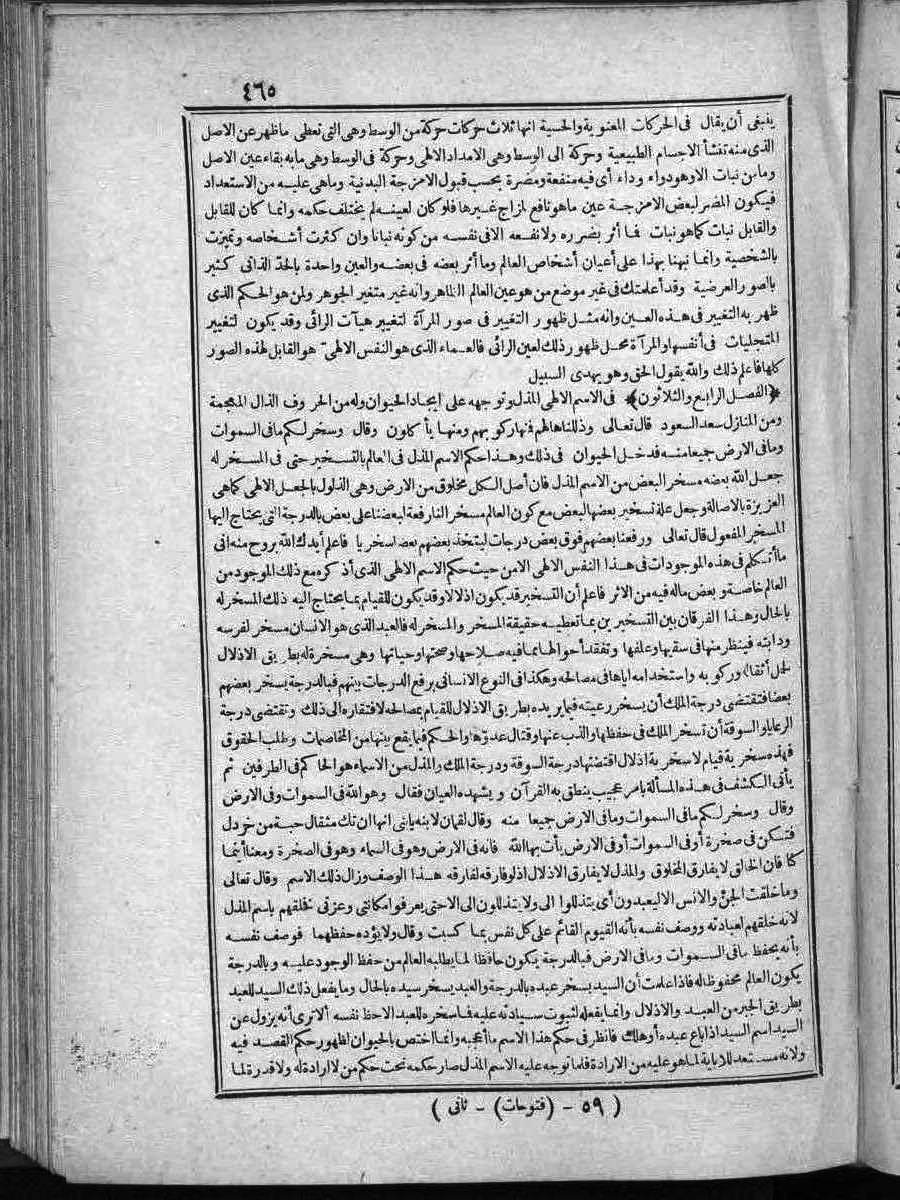 ٤٦٥
ينبغى أن يقال فى الحركات المعنوية والحسية انها ثلاث حركات حركة من الوسط وهى التى تعطى ما ظهر عن الاصل
الذى منه تنشأ الاجسام الطبيعية وحركة الى الوسط وهى الامداد الالهى وحركة فى الوسط وهى مابه بقاء عين الاصل
وما من نبات الا وهو دواء وداء أى فيه منفعة ومضرة بحسب قبول الامزجة البدنية وماهى عليه من الاستعداد
فيكون المضر لبعض الامزجة عين ماهو نافع لمزاج غيرها فلو كان لعينه لم يختلف حكمه وانما كان للقابل
والقابل نبات كماهو نبات فما أثر بضرره ولا نفعه الا فى نفسه من كونه نباتا وان كثرت أشخاصه وتميزت
بالشخصية وانما نبهنا بهذا على أعيان أشخاص العالم وما أثر بعضه فى بعضه والعين واحدة بالحد الذاتى كثير
بالصور العرضية وقد أعلمتك فى غير موضع من هو عين العالم الظاهر وانه غير متغير الجوهر ولمن هو الحكم الذى
ظهر به التغيير فى هذه العين وانه مثل ظهور التغيير فى صور المرآة لتغيير هيآت الرائى وقد يكون لتغيير
المتجليات فى أنفسها والمرآة محل ظهور ذلك لعين الرائى فالعماء الذى هو النفس الالهى هو القابل لهذه الصور
كلها فاعلم ذلك والله يقول الحق وهو يهدى السبيل
﴿الفصل الرابع والثلاثون﴾ فى الاسم الالهى المذل وتوجهه على ايجاد الحيوان وله من الحروف الذال المعجمة
ومن المنازل سعد السعود قال تعالى وذللناها لهم فنها ركوبهم ومنها يأكلون وقال وسخر لكم مافى السموات
ومافى الارض جميعا منه فدخل الحيوان فى ذلك وهذا حكم الاسم المذل فى العالم بالتسخير حتى فى المسخر له
جعل الله بعضه مسخر البعض من الاسم المذل فان أصل الكل مخلوق من الارض وهى الذلول بالجعل الالهى كماهى
العزيزة بالاصالة وجعل علة تسخير بعضها لبعض مع كون العالم مسخر النا رفعة بعضنا على بعض بالدرجة التى يحتاج اليها
المسخر المفعول قال تعالى ورفعنا بعضهم فوق بعض درجات ليتخذ بعضهم بعضا سخريا فاعلم أيدك الله بروح منه انى
ما أتكلم فى هذه الموجودات فى هذا النفس الالهى الا من حيث حكم الاسم الالهى الذى أذكره مع ذلك الموجود من
العالم خاصة وبعض ماله فيه من الاثر فاعلم أن التسخير قد يكون اذلالا وقد يكون للقيام بما يحتاج اليه ذلك المسخر له
بالحال وهذا الفرقان بين التسخيرين بما تعطيه حقيقة المسخر والمسخر له فالعبد الذى هو الانسان مسخر لفرسه
ودابته فينظر منها فى سقيها وعلفها وتفقد أحوالها مما فيه صلاحها وصحتها وحياتها وهى مسخرة له بطريق الاذلال
لحمل أثقاله وركوبه واستخدامه اياها فى مصالحه وهكذا فى النوع الانسانى برفع الدرجات بينهم فبالدرجة يسخر بعضهم
بعضا فتقتضى درجة الملك أن يسخر رعيته فيما يريده بطريق الاذلال للقيام بمصالحه لافتقاره الى ذلك وتقتضى درجة
الرعايا والسوقة أن تسخر الملك فى حفظها والذب عنها وقتال عدوها والحكم فيما يقع بينها من المخاصمات وطلب الحقوق
فهذه سخرية قيام لا سخرية اذلال اقتضتها درجة السوقة ودرجة الملك والمذل من الاسماء هو الحاكم فى الطرفين ثم
يأتى الكشف فى هذه المسألة بأمر عجيب ينطق به القرآن ويشهده العيان فقال وهو الله فى السموات وفى الارض
وقال وسخر لكم مافى السموات ومافى الارض جميعا منه وقال لقمان لابنه يابنى انها ان تك مثقال حبة من خردل
فتكن فى صخرة أوفى السموات أوفى الارض يأت بها الله فانه فى الارض وهو فى السماء وهو فى الصخرة ومعنا أينما
كنا فان الخالق لا يفارق المخلوق والمذل لا يفارق الاذلال اذ لو فارقه لفارقه هذا الوصف وزال ذلك الاسم وقال تعالى
وما خلقت الجن والانس الا ليعبدون أى يتذللوا الى ولا يتذللون الى الا حتى يعرفوا مكانتى وعزتى فخلقهم باسم المذل
لانه خلقهم لعبادته ووصف نفسه بأنه القيوم القائم على كل نفس بما كسبت وقال ولا يؤده حفظهما فوصف نفسه
بأنه يحفظ مافى السموات ومافى الارض فبالدرجة يكون حافظا لما يطلبه العالم من حفظ الوجود عليه وبالدرجة
يكون العالم محفوظا له فاذا علمت أن السيد يسخر عبده بالدرجة والعبد يسخر سيده بالحال وما يفعل ذلك السيد للعبد
بطريق الجبر من العبد والاذلال وانما يفعله لثبوت سيادته عليه فما سخره للعبد الا حظ نفسه ألا ترى أنه يزول عن
السيد اسم السيد اذا باع عبده أو هلك فانظر فى حكم هذا الاسم ما أعجبه وانما اختص بالحيوان لظهور حكم القصد فيه
ولانه مستعد للاباية لما هو عليه من الارادة فلما توجه عليه الاسم المذل صار حكمه تحت حكم من لا ارادة له ولا قدرة لما
( ٥٩ - (فتوحات) - ثانى )